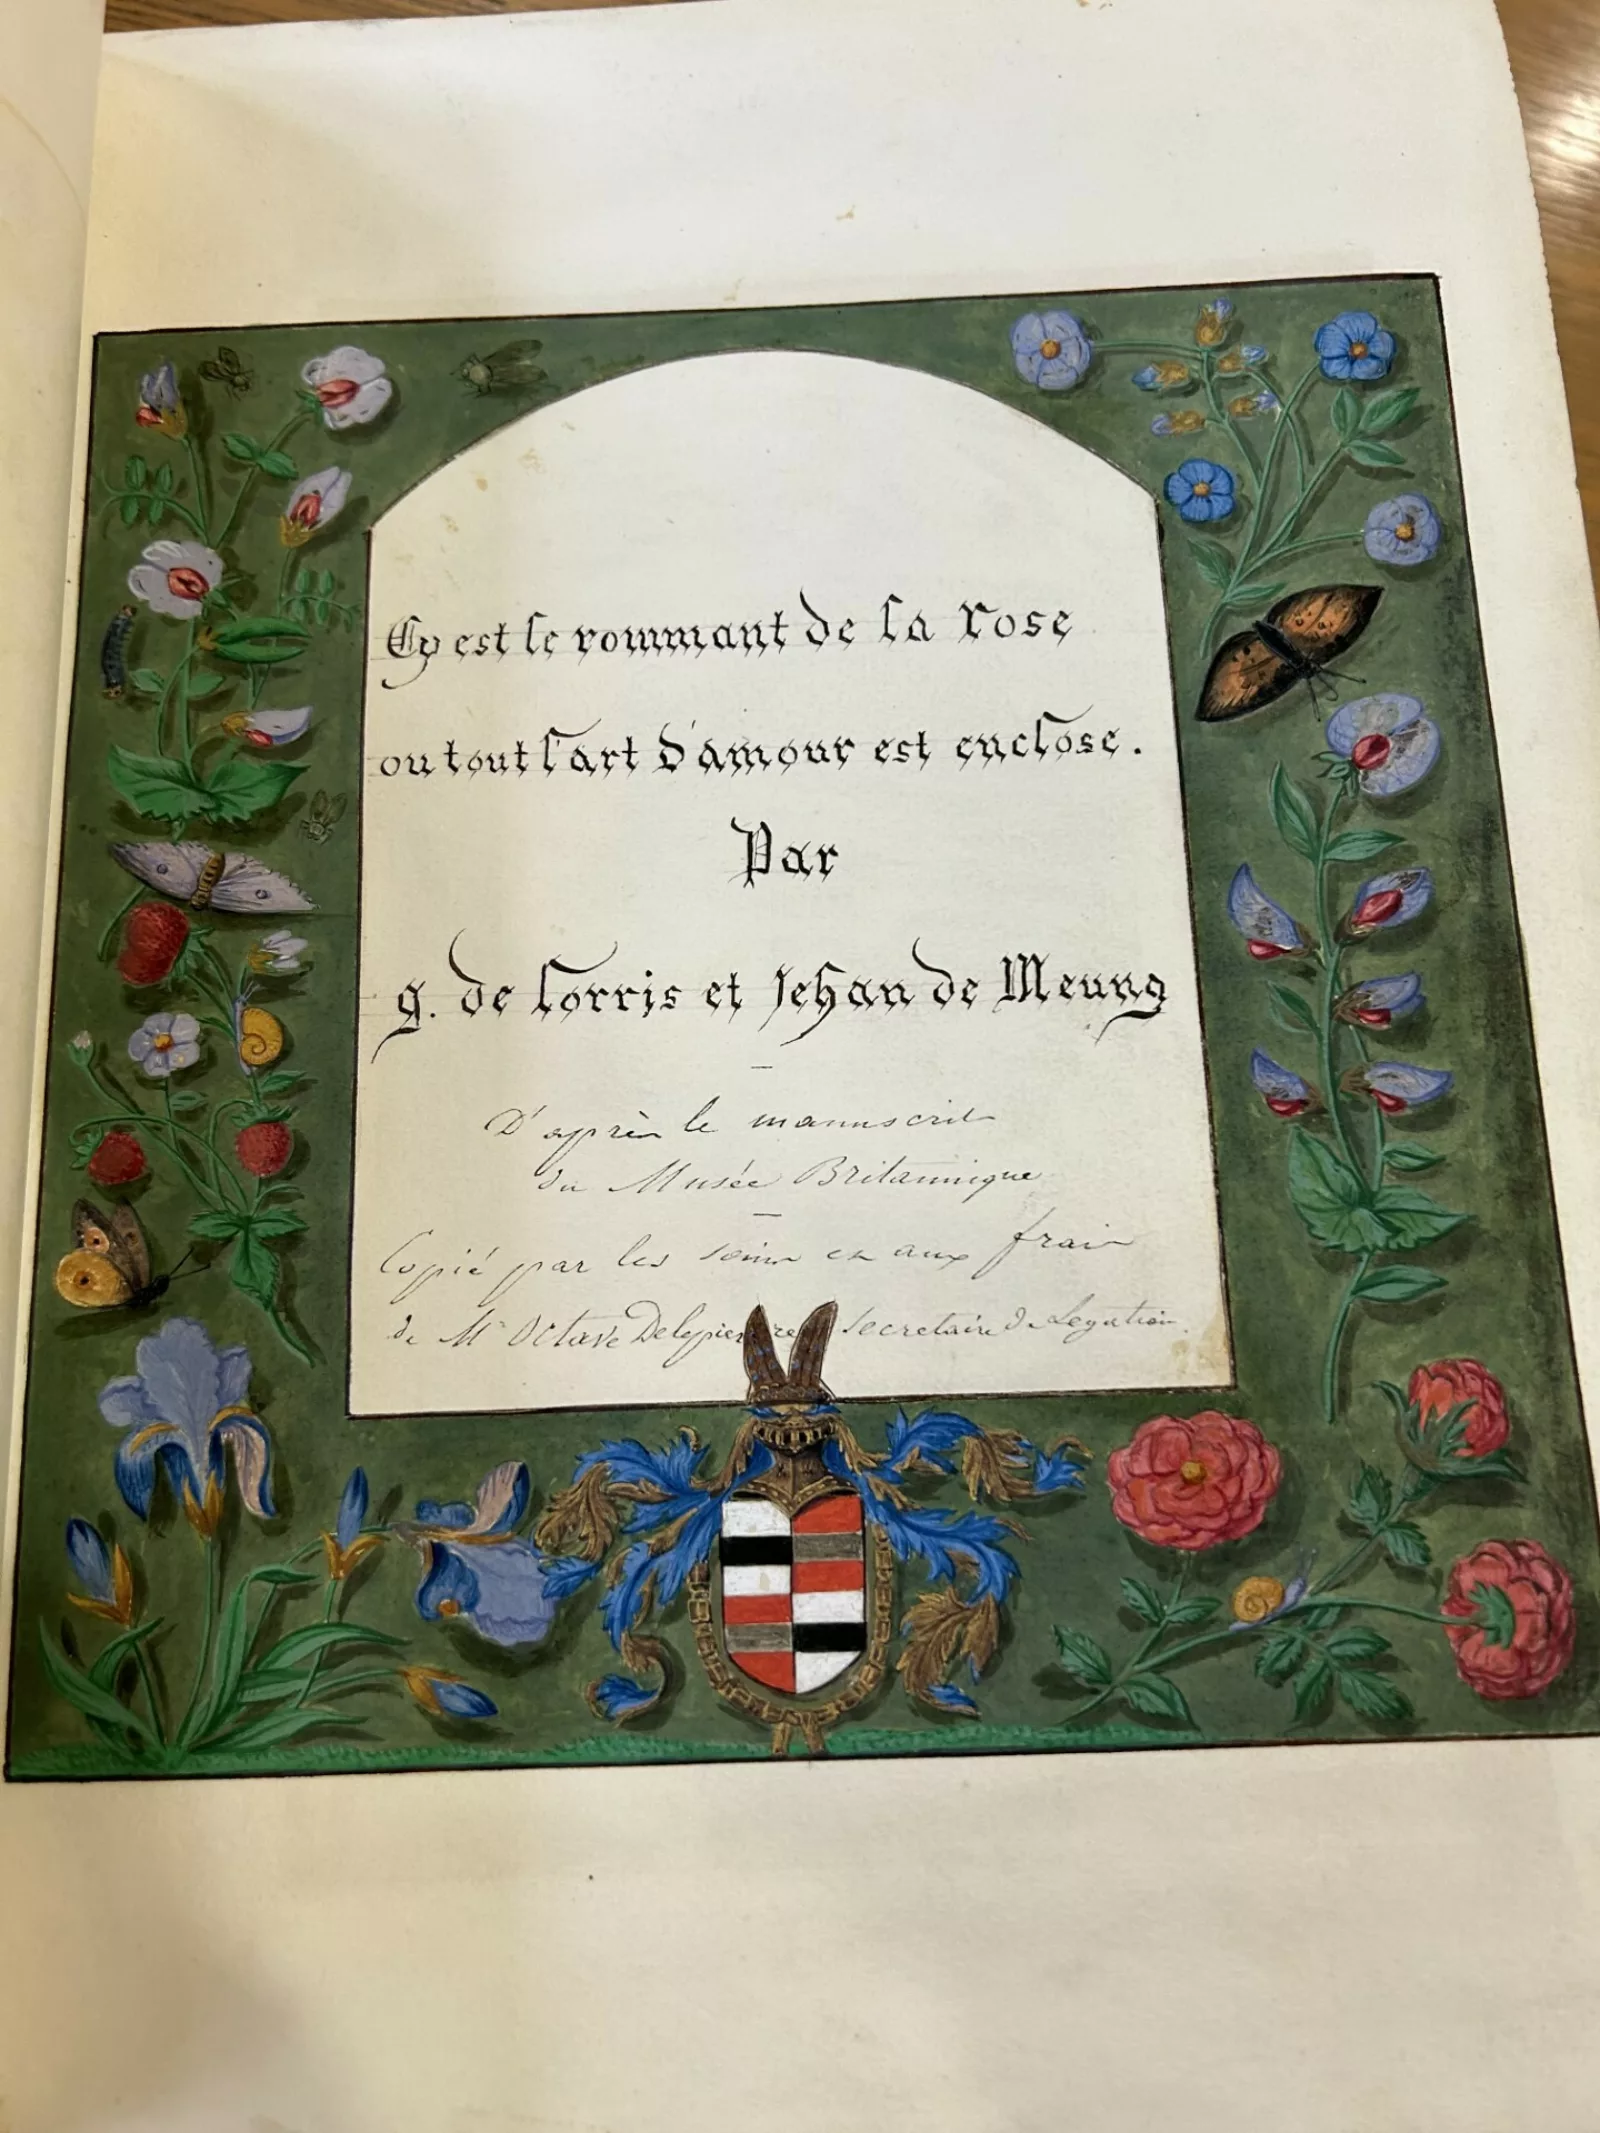 Cy est le rommant de la rose
ou tout l'art d'amour est enclose.
Par
g. de lorris et Jehan de Meung
D'après le manuscrit
du Musée Britannique
Copié par les soins et aux frais
de Mr Octave Delepierre secretaire de Legation